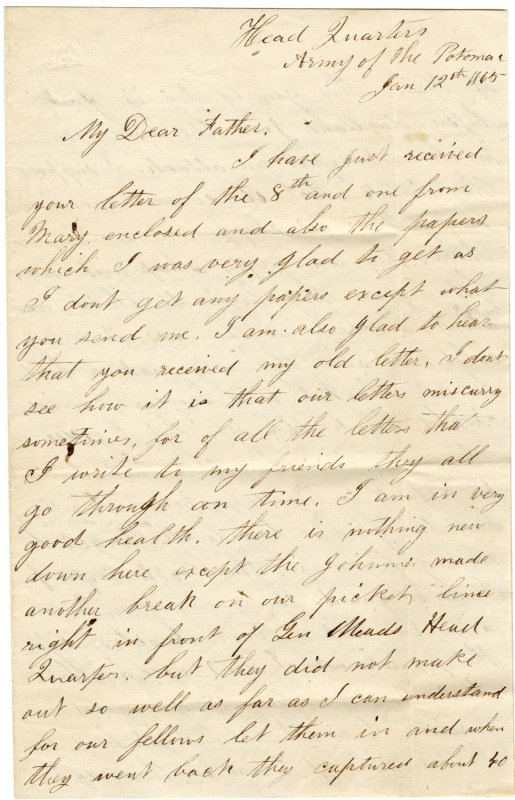 Head Quarters
Army of the Potomac
Jan. 12th 1865
My Dear Father.
I have just received
your letter of the 8th and one from
Mary enclosed and also the papers
which I was very glad to get as
I dont get any papers except what
you send me. I am also glad to hear
that you received my old letter, I dont
see how it is that our letters miscurry
sometimes, for of all the letters that
I write to my friends they all
go through on time. I am in very
good health. there is nothing new
down here except the Johnnies made
another break on our picket lines
right in front of Gen Meads Head
Quarters. but they did not make
out so well as far as I can understand
for our fellows let them in and when
they went back they captured about